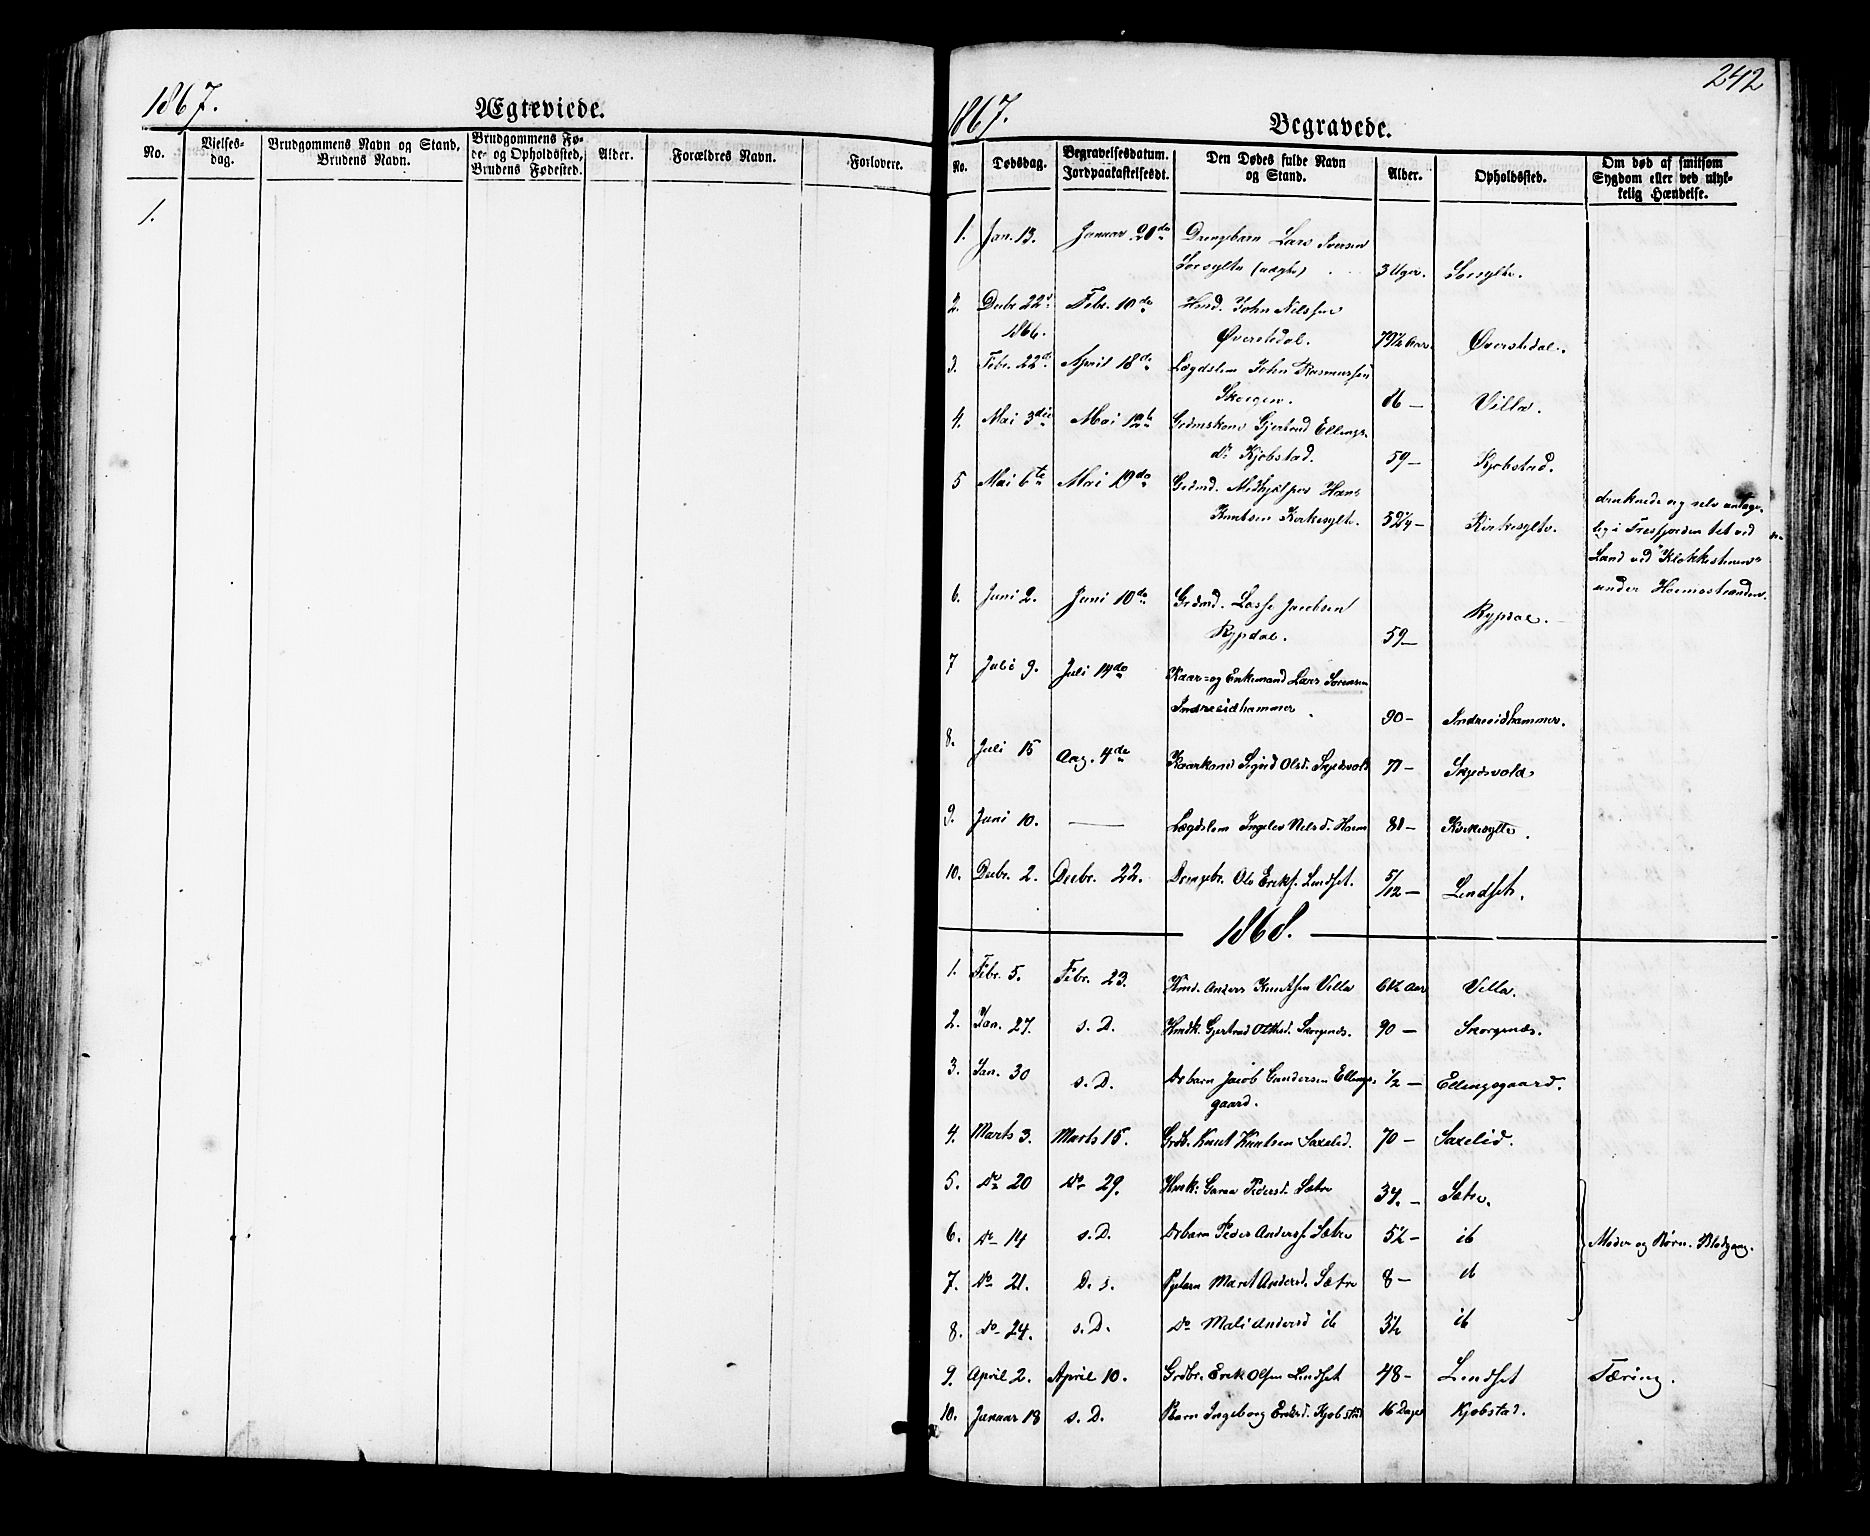 1867.
Ægteviede.
No.
Vielses-
dag.
Brudgommens Navn og Stand,
Brudens Navn.
Brudgommens Fø-
de- og Opholdssted,
Brudens Fødested.
Alder.
Forældres Navn.
Forlovere.
1.
242
1867.
Begravede.
No.
Dødsdag.
Begravelsesdatum.
Jordpaakastelsesdt.
Den Dødes fulde Navn
og Stand.
Alder.
Opholdssted.
Om død af smitsom
Sygdom eller ved ulyk-
kelig Hændelse.
1. Jan. 13. Januar 20de Drengebarn Lars Iversen
Sorsylte (uægte) 3 Uger. Sorsylte.
2. Decbr. 22d Febr. 10de Hmd. John Nilssen
1866. Øverstedal. 79½ Aar. Øverstedal.
3. Febr. 22de April 18de Lægdslem John Rasmussen
Skorgen. 86 — Villa.
4. Mai 3die Mai 12te Grdmskone Gjertrud Ellings-
dr Kjobstad. 59 — Kjobstad.
5 Mai 6te Mai 19de Grdmd. Medhjelper Hans
Knutsen Kirkesylte. 59¼ — Kirkesylte.
druknede og selv antage-
lig i Tresfjorden tet ved
Land ved "Klokkestenen"
under Hoemsstranden.
6. Juni 2. Juni 10de Grdmd. Lasse Jacobsen
Rypdal. 59 — Rypdal.
7 Juli 9. Juli 14de Kaar- og Enkemand Lars Sorensen
Indreeidhammer 90 — Indreeidhammer.
8. Juli 15 Aug. 4de Kaarkone Sigrid Olsd. Skjedsvold 71 — Skjedsvold
9. Juni 10. — Lægdslem Ingelev Nelsd. Hoem 81 — Kirkesylte.
10. Decbr. 2. Decbr. 22. Drengebr. Ole Eriks. Lindset. 5/12 — Lindset.
1868.
1. Febr. 5. Febr. 23. Hmd. Anders Knutsen Villa 6½ Aar Villa.
2. Jan. 27. s. D. Hmdk. Gjertrud Olsd. Skorgenes. 90 — Skorgenæs.
3. Jan. 30 s. D. Drbarn Jacob Gundersen Ellings-
gaard. ½ — Ellingsgaard.
4. Marts 3. Marts 15. Grdbr. Knut Knutsen Saxelid. 70 — Saxelid.
5. Do 20 Do 29. Hmk: Saraa Pedersd. Sætre 37. — Sætre.
6. Do 14 s. D. Drbarn Peder Anderss. Sætre 5½ — ib
Moder og Børn. Blodgang.
7. Do 21. D. s. Pgebarn Marit Andersd. Sætre 8 — ib
8. Do 24. s. D. Do Mali Andersd ib 3½ ib
9. April 2. April 10. Grdbr. Erik Olsen Lindset 48 — Lindset Tæring.
10. Januar 18 s. D. Barn Ingeborg Eriksd. Kjobstad 16 Dage Kjobstad.